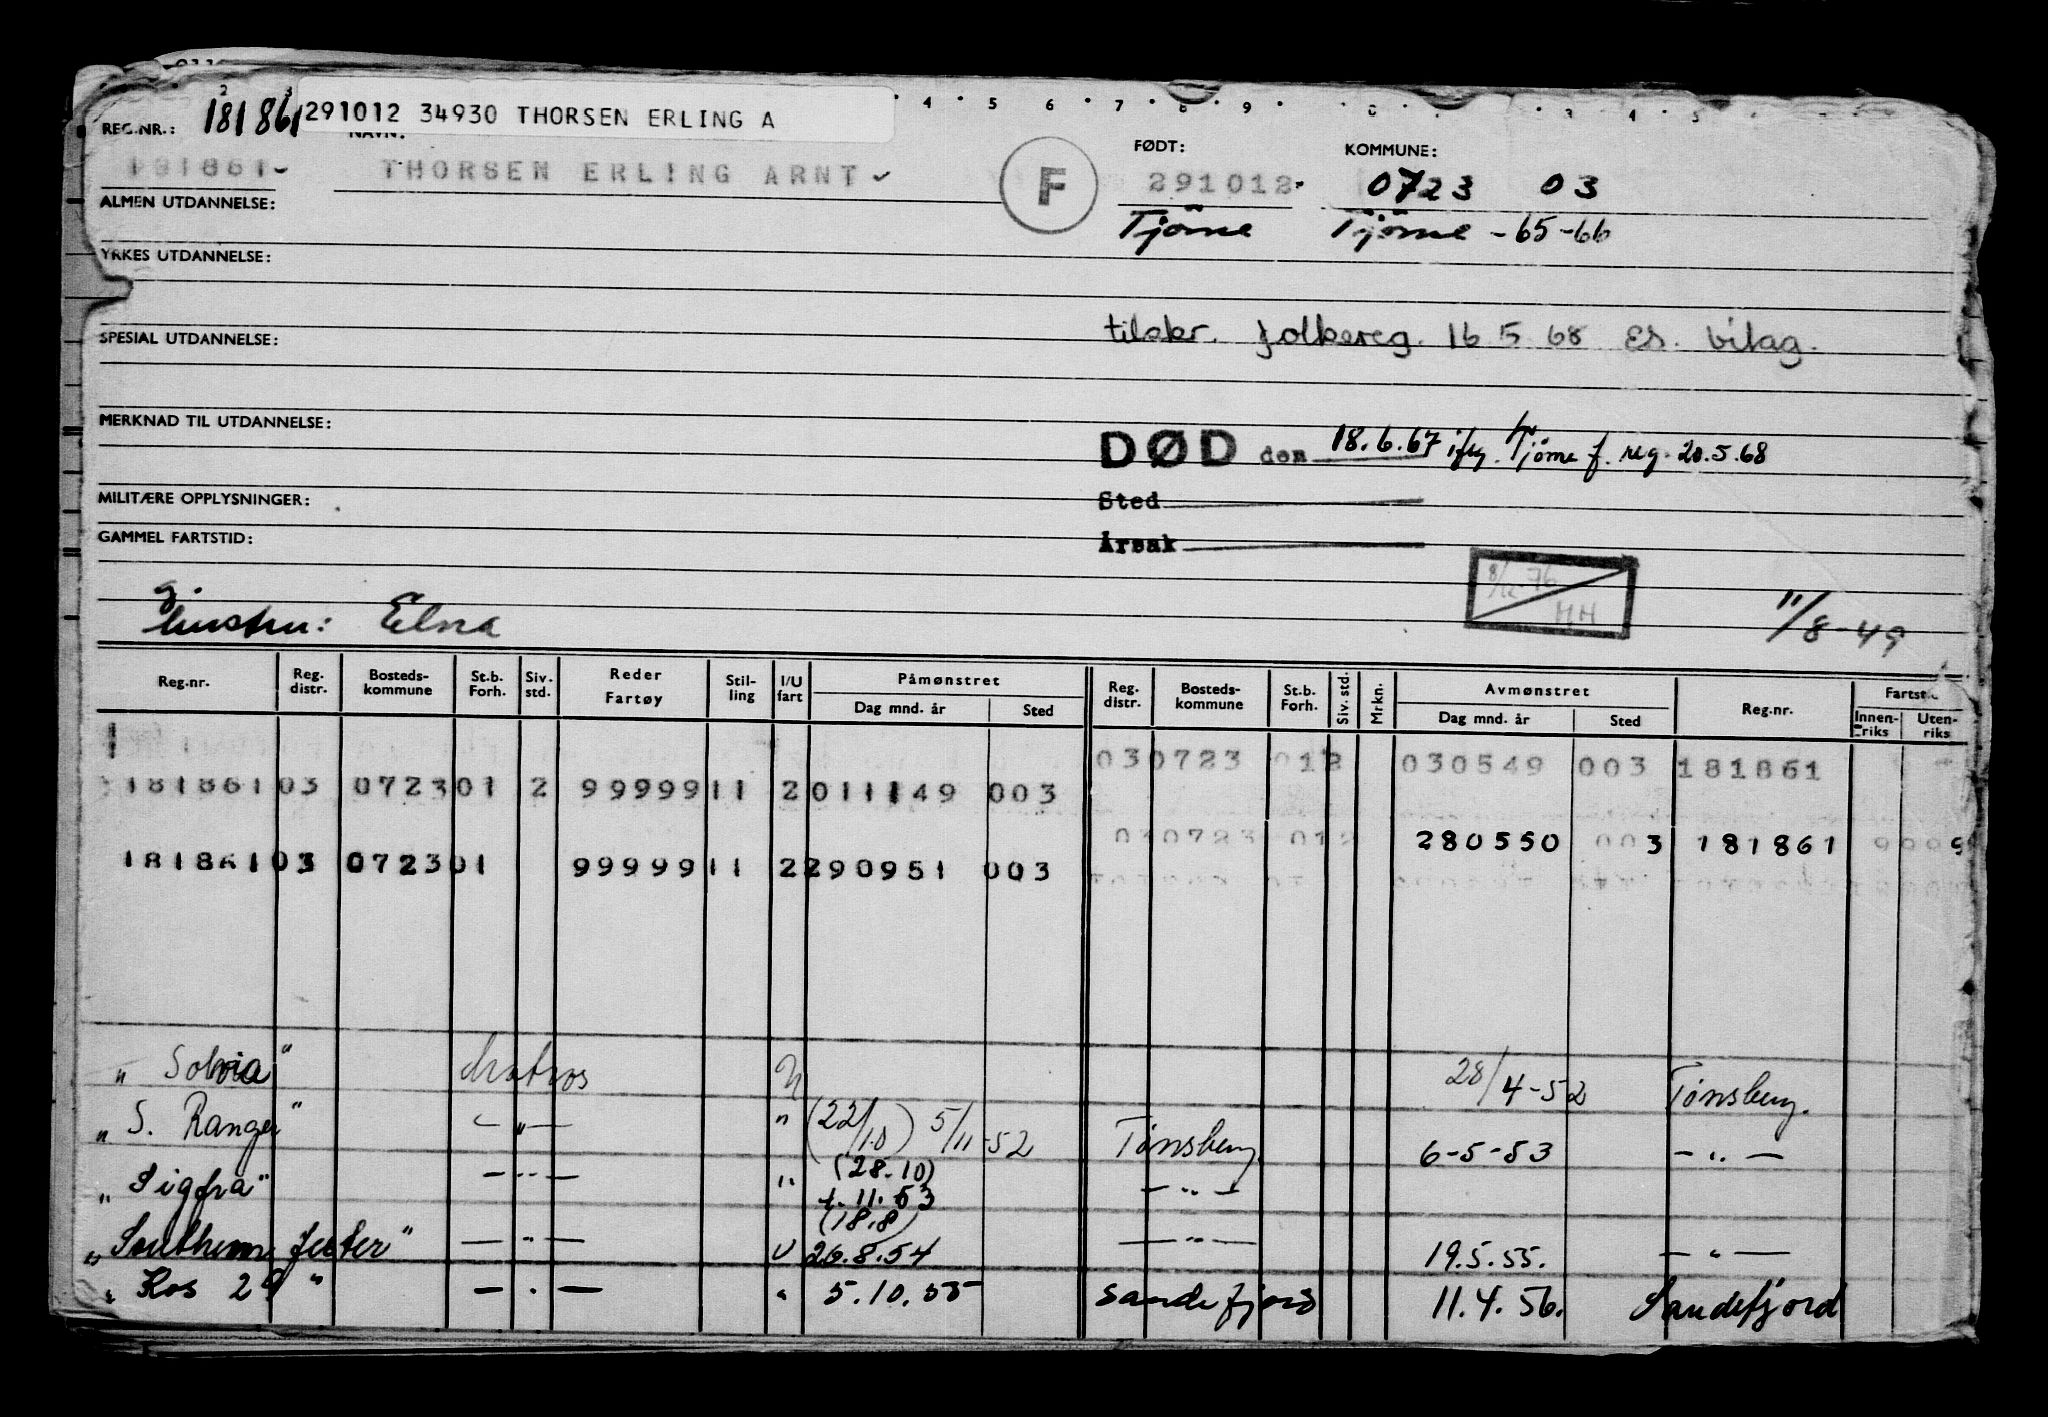 REG.NR.: 181861 291012 34930 THORSEN ERLING A
NAVN:
181861 THORSEN ERLING ARNT
F
FØDT: KOMMUNE:
291012 0723 03
Tjöme Tjöme - 65-66
ALMEN UTDANNELSE:
YRKES UTDANNELSE:
SPESIAL UTDANNELSE:
tilskr. folkereg. 16 5 68 Es. bilag.
MERKNAD TIL UTDANNELSE:
DØD den 18.6.67 iflg. Tjöme f. reg. 20.5.68
MILITÆRE OPPLYSNINGER:
Sted
GAMMEL FARTSTID:
Årsak
8/12-76
HH
g.
hustru: Elna
11/8-49
Reg.nr. Reg. distr. Bosteds-kommune St.b. Forh. Siv. std. Reder Fartøy Stil-ling I/U fart Påmønstret Dag mnd. år Sted Reg. distr. Bosteds-kommune St.b. Forh. Siv. std. Mrkn. Avmønstret Dag mnd. år Sted Reg.nr. Innen-riks Uten-riks
030723 012 030549 003 181861
181861 03 0723 01 2 99999 11 2 011149 003
030723 012 280550 003 181861
181861 03 0723 01 99999 11 2 290951 003
" Solvia " Matros U 28/4-52 Tønsberg.
" S. Ranger " — " — " (22/10) 5/11-52 Tønsberg 6-5-53 — " —
" Sigfra " — " — " (28.10) 4.11.53 — " —
(18.8)
" Southern Jester " — " — U 26.8.54 — " — 19.5.55. — " —
" Kos 29 " — " — " 5.10.55 Sandefjord 11.4.56. Sandefjord